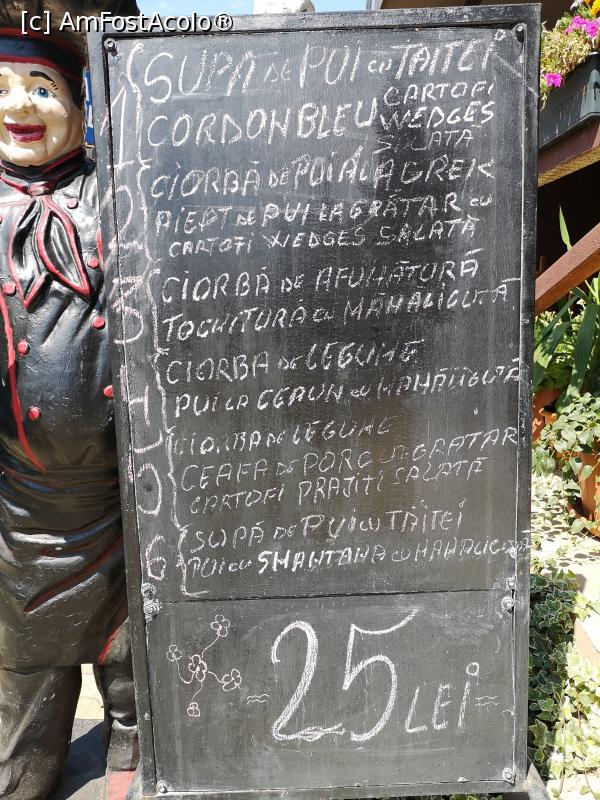 [c] AmFostAcolo®
1
SUPA DE PUI CU TAITEI
CORDON BLEU CARTOFI
WEDGES
SALATĂ
2
CIORBĂ DE PUI A LA GREK
PIEPT DE PUI LA GRĂTAR CU
CARTOFI WEDGES SALATĂ
3
CIORBĂ DE AFUMĂTURĂ
TOCHITURĂ CU MĂMĂLIGUTĂ
4
CIORBA DE LEGUME
PUI LA CEAUN CU MĂMĂLIGUTĂ
5
CIORBA DE LEGUME
CEAFA DE PORC LA GRATAR
CARTOFI PRAJITI SALATĂ
6
SUPĂ DE PUI CU TAITEI
PUI CU SMANTANA CU MAMALIGUTĂ
≈ 25 LEI ≈